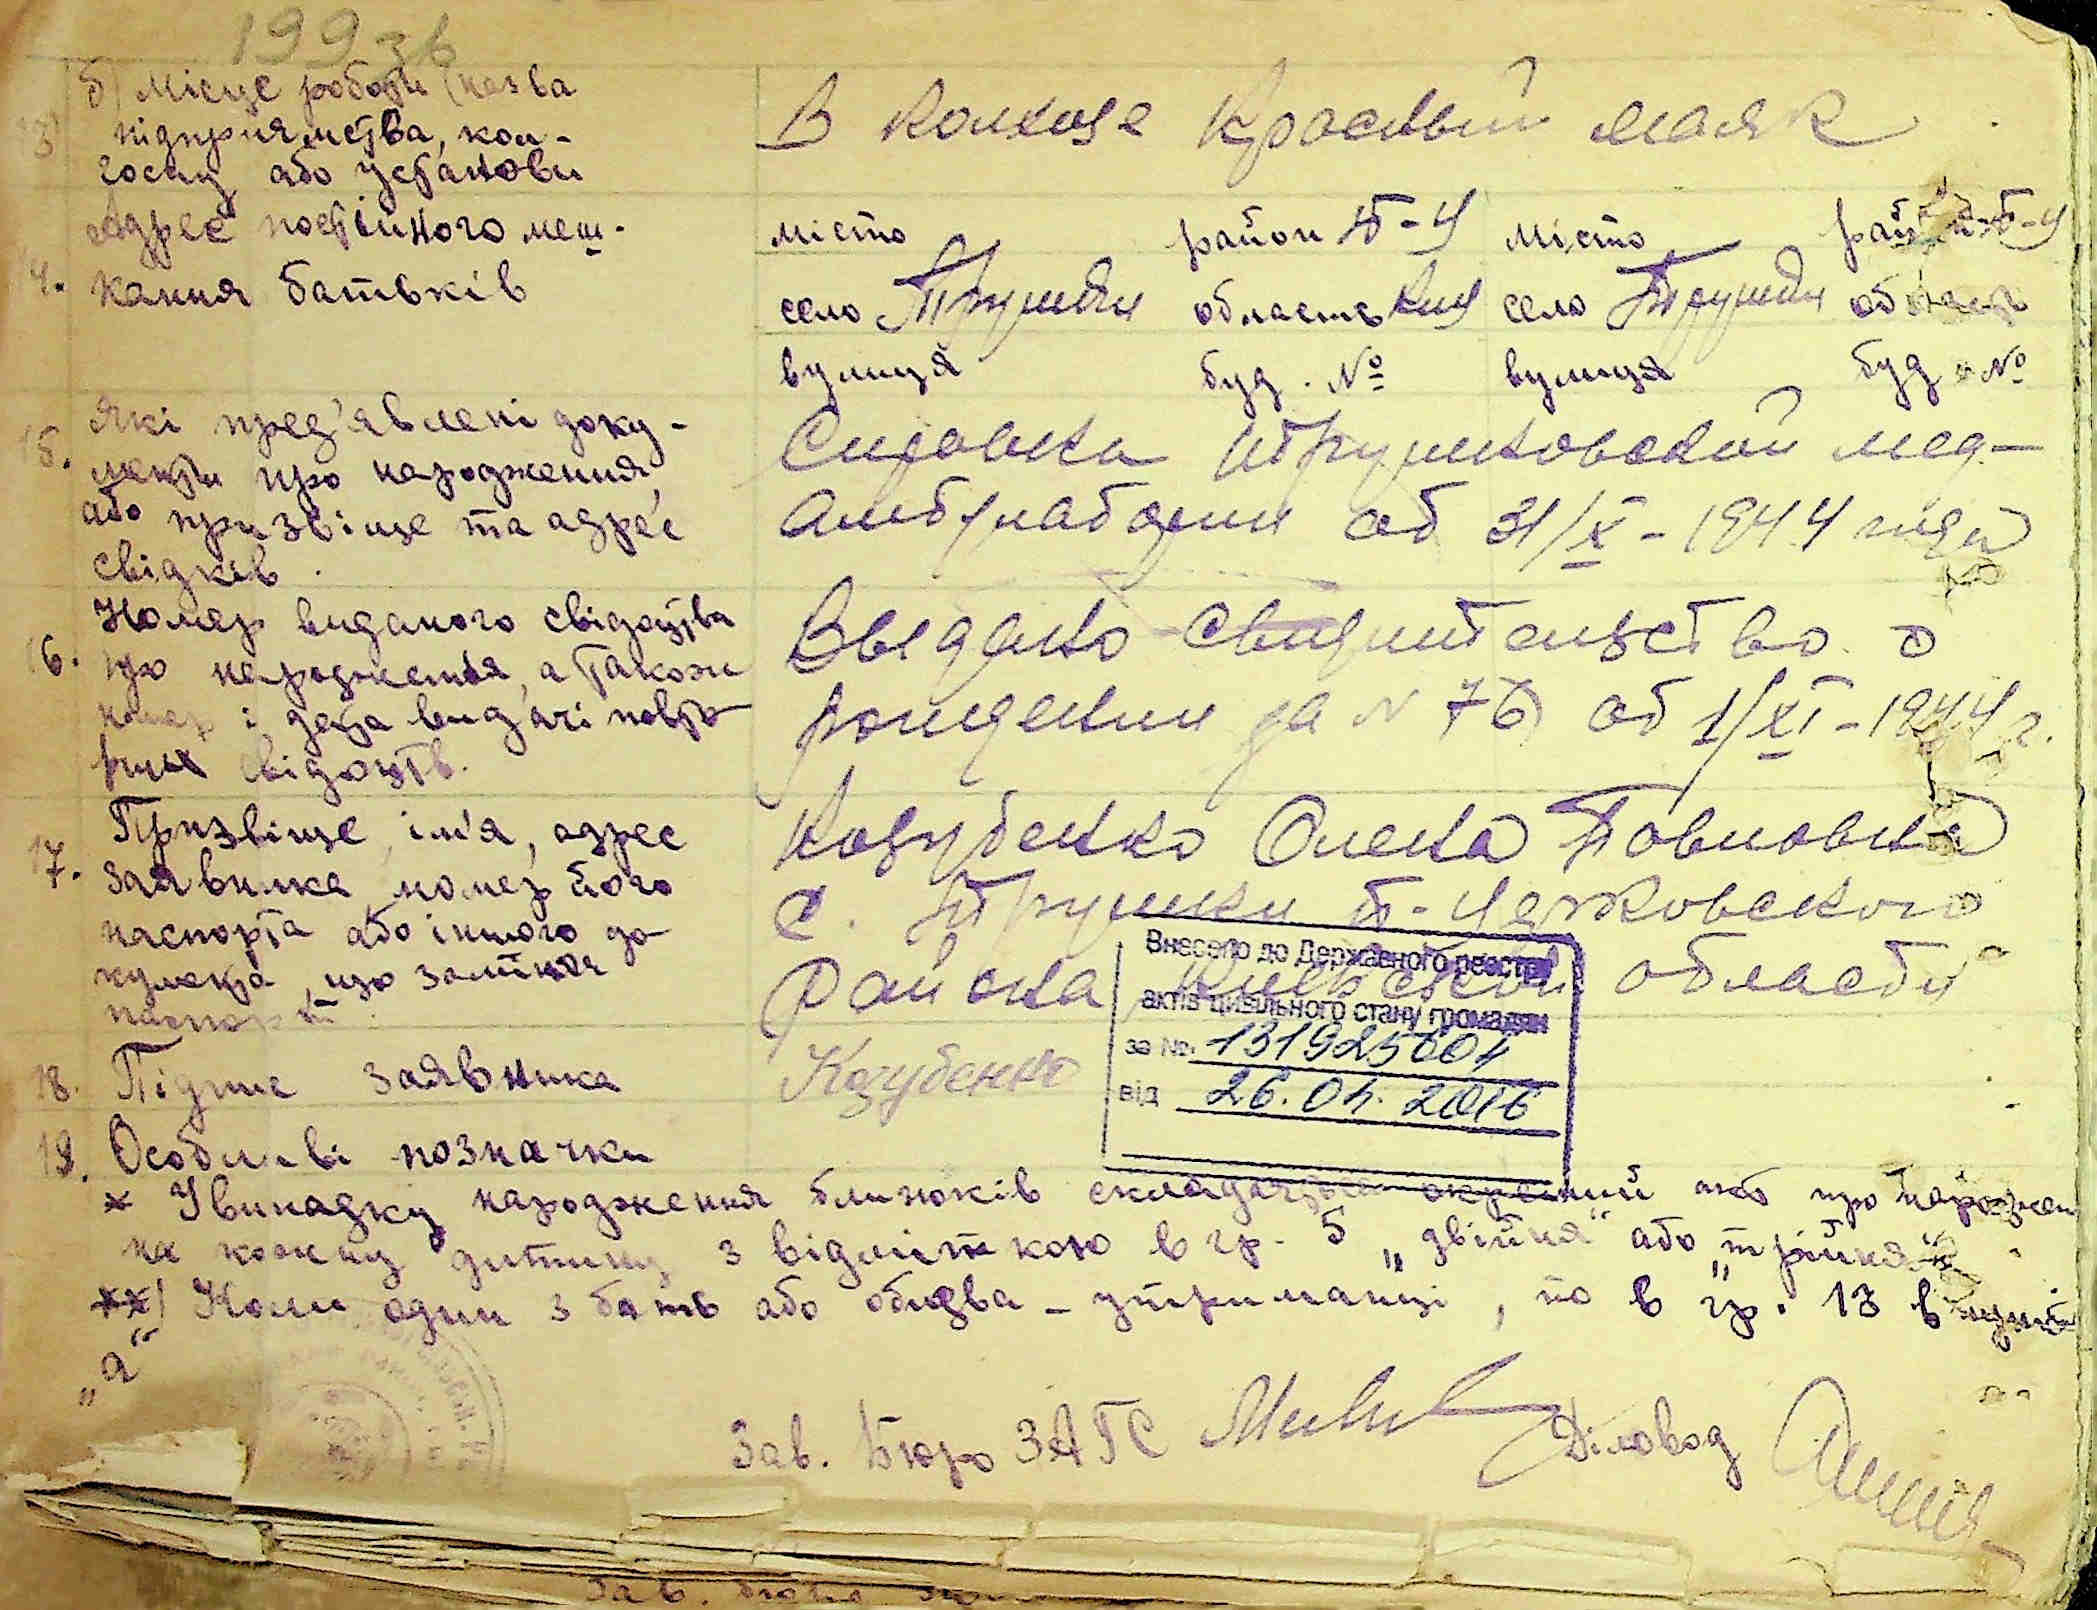 199 зв
б) Місце роботи (назва
13 підприємства, кол-
госпу або установи
В колхозе Красный маяк
Адрес постійного меш-
14. кання батьків
місто район Б-Ц місто район Б-Ц
село Трушки область Киї село Трушки область
вулиця буд. № вулиця буд. №
15. Які пред'явлені доку-
менти про народження,
або призвіще та адрес
свідків.
Справка Трушковской мед-
амбулатории от 31/X - 1944 года
16. Номер виданого свідоцтва
про народження, а також
номер і дата видачі повто
рних свідоцтв.
Выдано свидительство о
рождении за N 76 от 1/XI - 1944 г.
17. Призвіще, ім'я, адрес
заявника, номер його
паспорта або іншого до-
кумента, що заміняє
паспорт
Козубенко Олена Павловна
с. Трушки Б-Церковского
Района Киевской области
Внесено до Державного реєстру
актів цивільного стану громадян
за №. 131925604
від 26.04.2016
18. Підпис заявника Козубенко
19. Особливі позначки
* У випадку народження близюків складається окремий акт про народжен
на кожну дитину з відміткою в гр. 5 „двійня“ або „трійня“
**) Коли один з батьв або обидва - утриманці, то в гр. 13 в пункті
„а“
Зав. Бюро ЗАГС Діловод
Зав. бюро